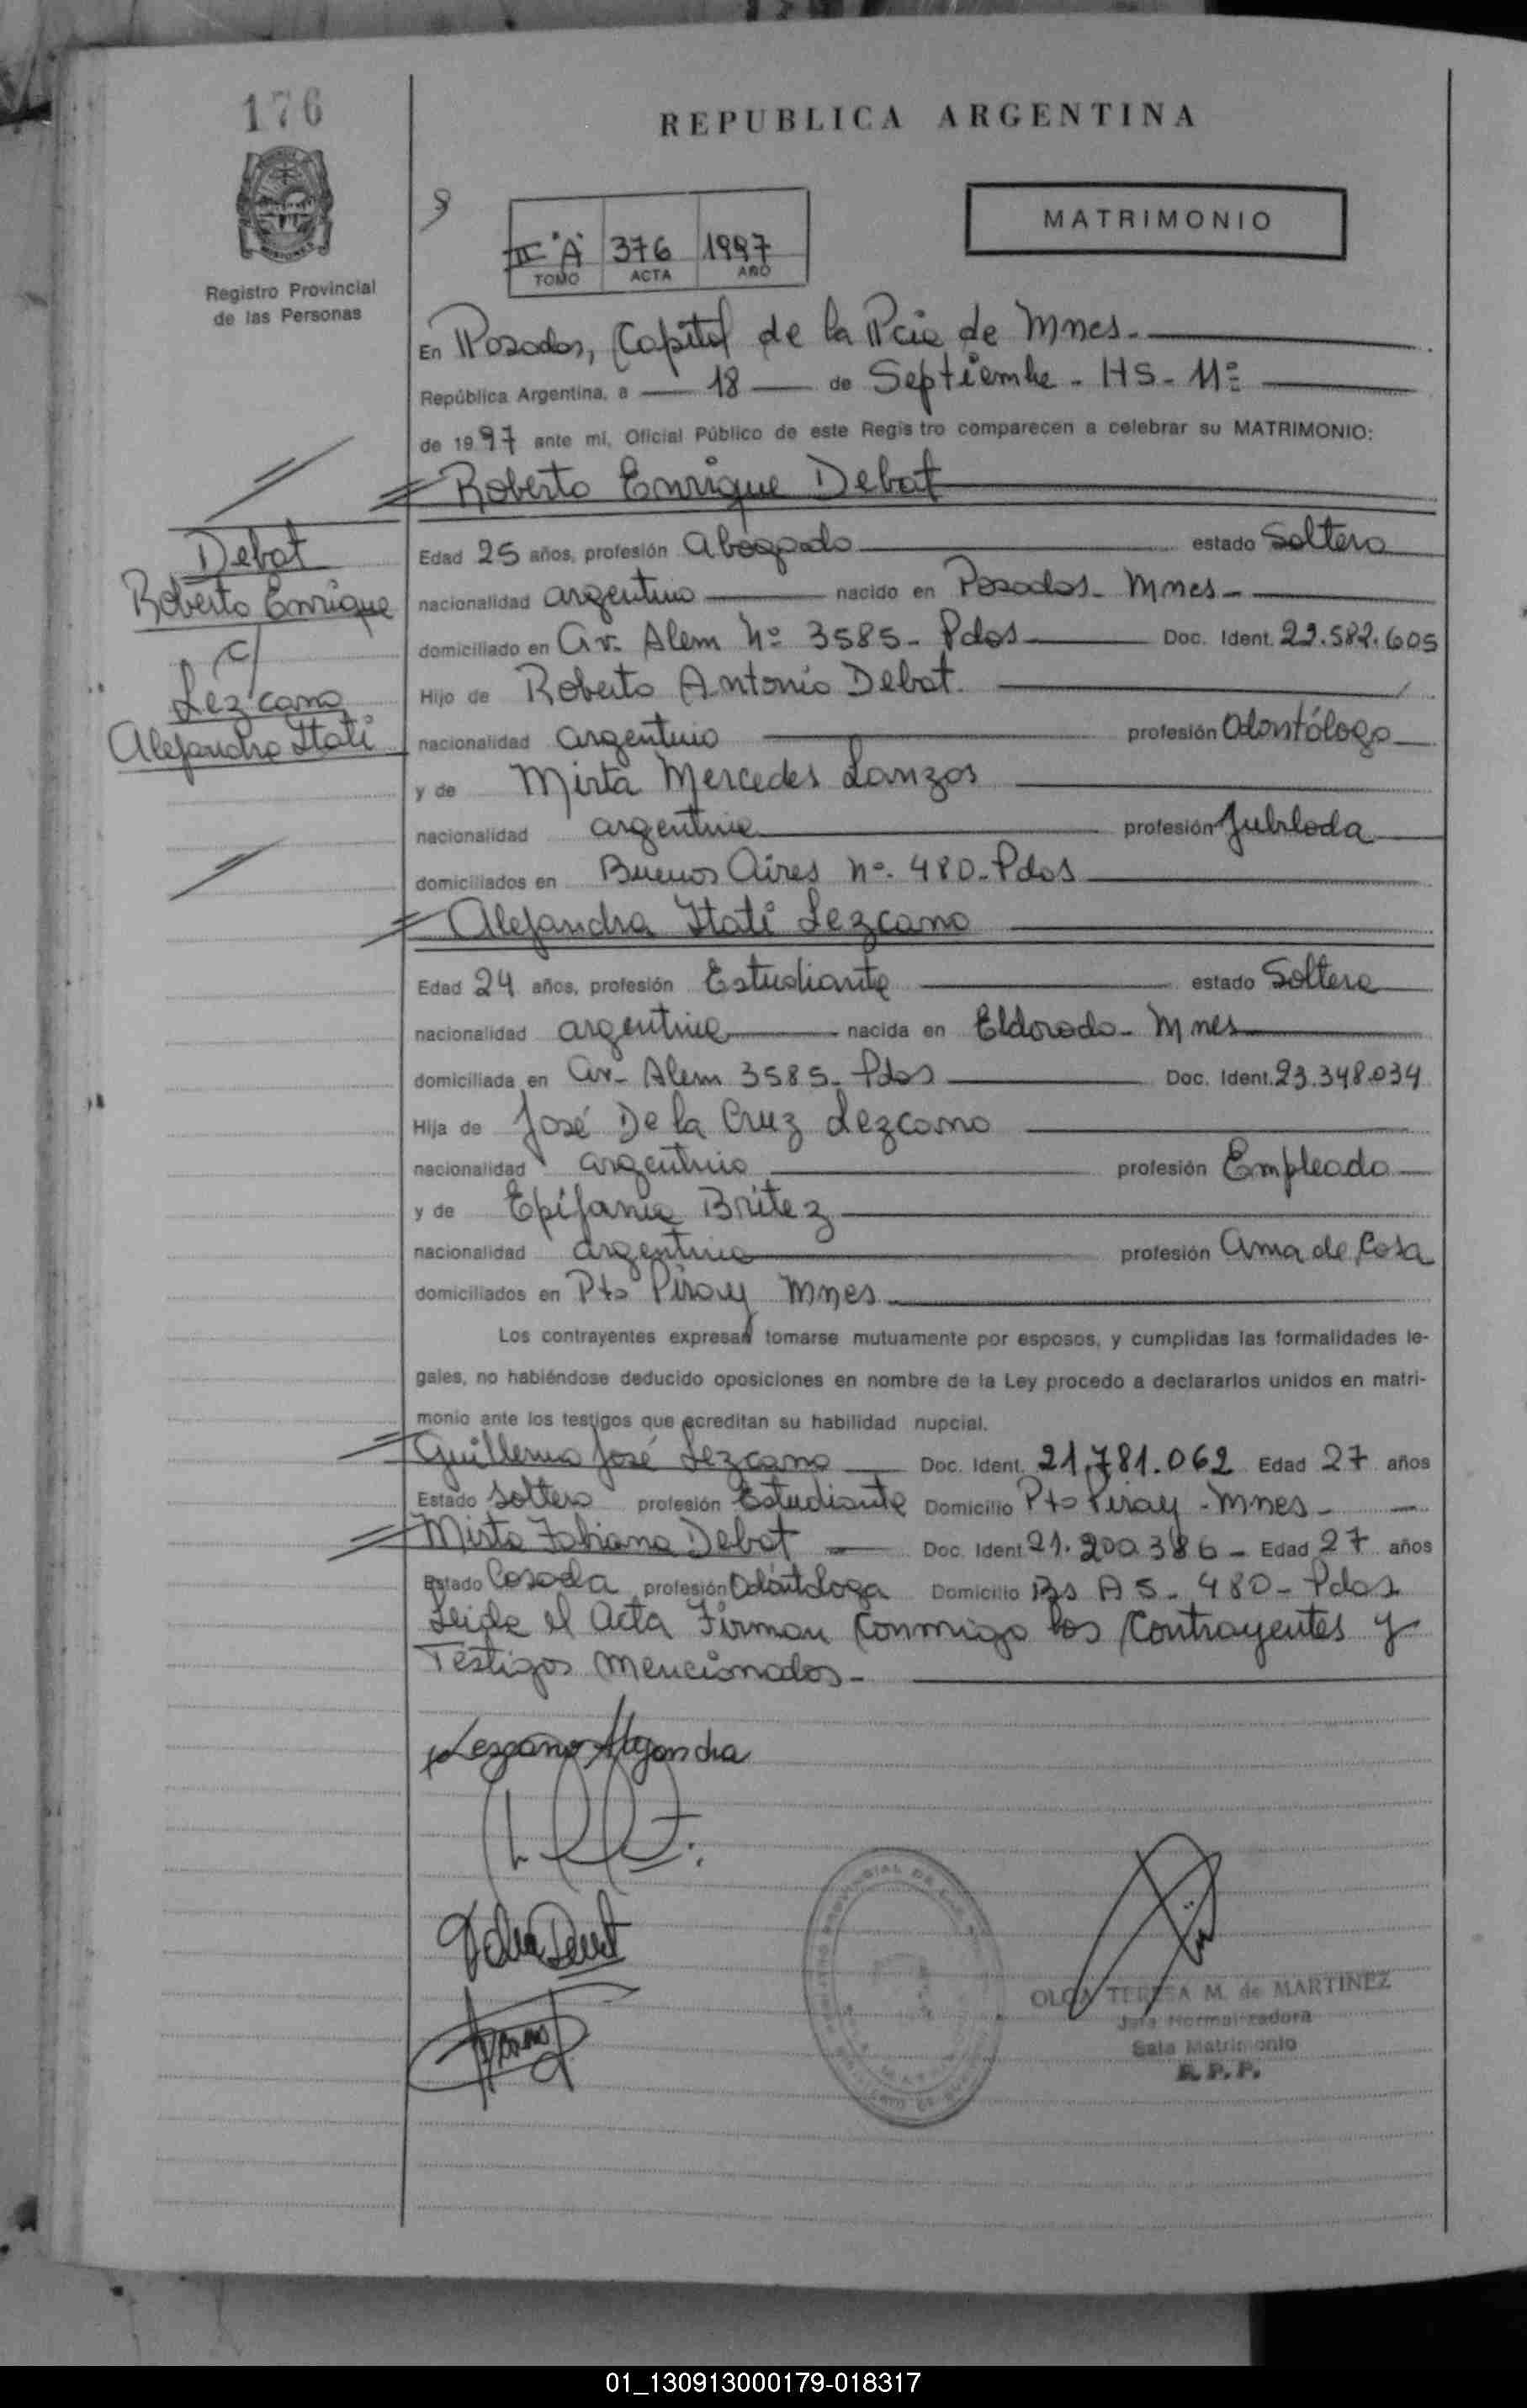 176
REPUBLICA ARGENTINA
MATRIMONIO
II "A" 376 1997
TOMO ACTA AÑO
Registro Provincial
de las Personas
En Posadas, Capital de la Pcia de Mnes.
República Argentina, a 18 de Septiembre - HS - 11
de 1997 ante mi, Oficial Público de este Registro comparecen a celebrar su MATRIMONIO:
Roberto Enrique Debat
Debat
Roberto Enrique
c/
Lezcano
Alejandra Itati
Edad 25 años, profesión Abogado estado Soltero
nacionalidad argentino nacido en Posadas - Mnes -
domiciliado en Av. Alem Nº 3585 - Pdas Doc. Ident. 22.582.605
Hijo de Roberto Antonio Debat.
nacionalidad argentino profesión Odontólogo
y de Mirta Mercedes Lanzos
nacionalidad argentina profesión Jubilada
domiciliados en Buenos Aires Nº. 480 - Pdas
Alejandra Itati Lezcano
Edad 24 años, profesión Estudiante estado Soltera
nacionalidad argentina nacida en Eldorado - Mnes
domiciliada en Av - Alem 3585 - Pdas Doc. Ident. 23.348.034
Hija de José De la Cruz Lezcano
nacionalidad argentino profesión Empleado
y de Epifania Britez
nacionalidad argentina profesión Ama de Casa
domiciliados en Pto Piray Mnes
Los contrayentes expresan tomarse mutuamente por esposos, y cumplidas las formalidades le-
gales, no habiéndose deducido oposiciones en nombre de la Ley procedo a declararlos unidos en matri-
monio ante los testigos que acreditan su habilidad nupcial.
Guillermo José Lezcano Doc. Ident. 21.781.062 Edad 27 años
Estado Soltero profesión Estudiante Domicilio Pto Piray - Mnes -
Mirta Fabiana Debat Doc. Ident 21.200.386 - Edad 27 años
Estado Casada profesión Odontologa Domicilio Bs As - 480 - Pdas
Leida el Acta Firman Conmigo los Contrayentes y
Testigos mencionados -
Lezcano Alejandra
OLGA TERESA M. de MARTINEZ
Jefa Normalizadora
Sala Matrimonio
R. P. P.
01_130913000179-018317